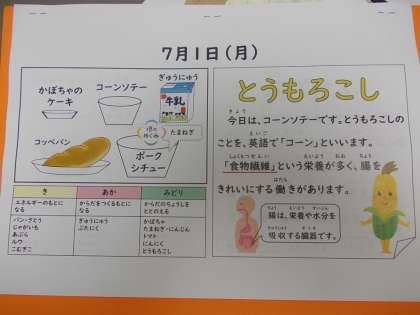 7月1日(月)
かぼちゃの
ケーキ
コーンソテー
ぎゅうにゅう
牛乳
コッペパン
たまねぎ
ポーク
シチュー
き
あか
みどり
エネルギーのもとに
なる
からだをつくるもとに
なる
からだのちょうしを
ととのえる
パン・さとう
じゃがいも
あぶら
ルウ
こむぎこ
ぎゅうにゅう
ぶたにく
かぼちゃ
たまねぎ・にんじん
トマト
にんにく
とうもろこし
とうもろこし
今日は、コーンソテーです。とうもろこしの
ことを、英語で「コーン」といいます。
「食物繊維」という栄養が多く、腸を
きれいにする働きがあります。
腸は、栄養や水分を
吸収する臓器です。